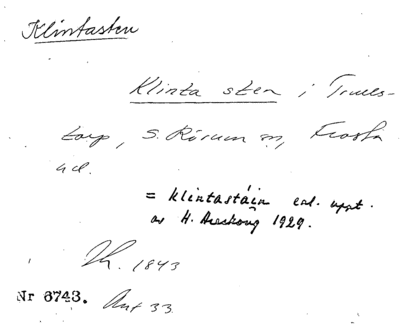 Klintasten
Klinta sten i Truels-
torp, S. Rörum sn, Frosta
hd.
= Klintastäin enl. uppt.
av H. 1929.
Th. 1843
Nr 6743. Ant 33